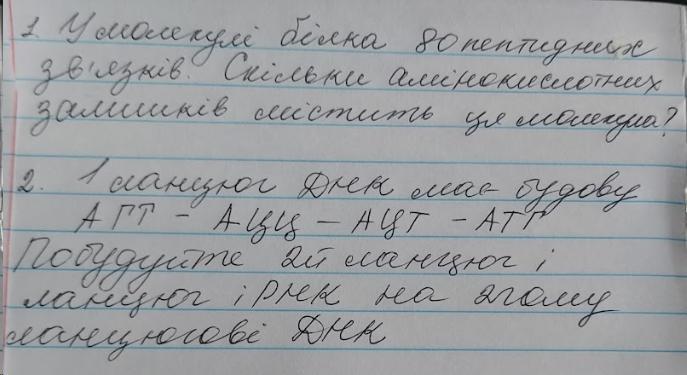 1 У молекулі білка 80 пептидних
зв'язків. Скільки амінокислотних
залишків містить ця молекула?
2. 1 ланцюг ДНК має будову
АГТ - АЦЦ - АЦТ - АТГ
Побудуйте 2й ланцюг і
ланцюг іРНК на 2гому
ланцюгові ДНК